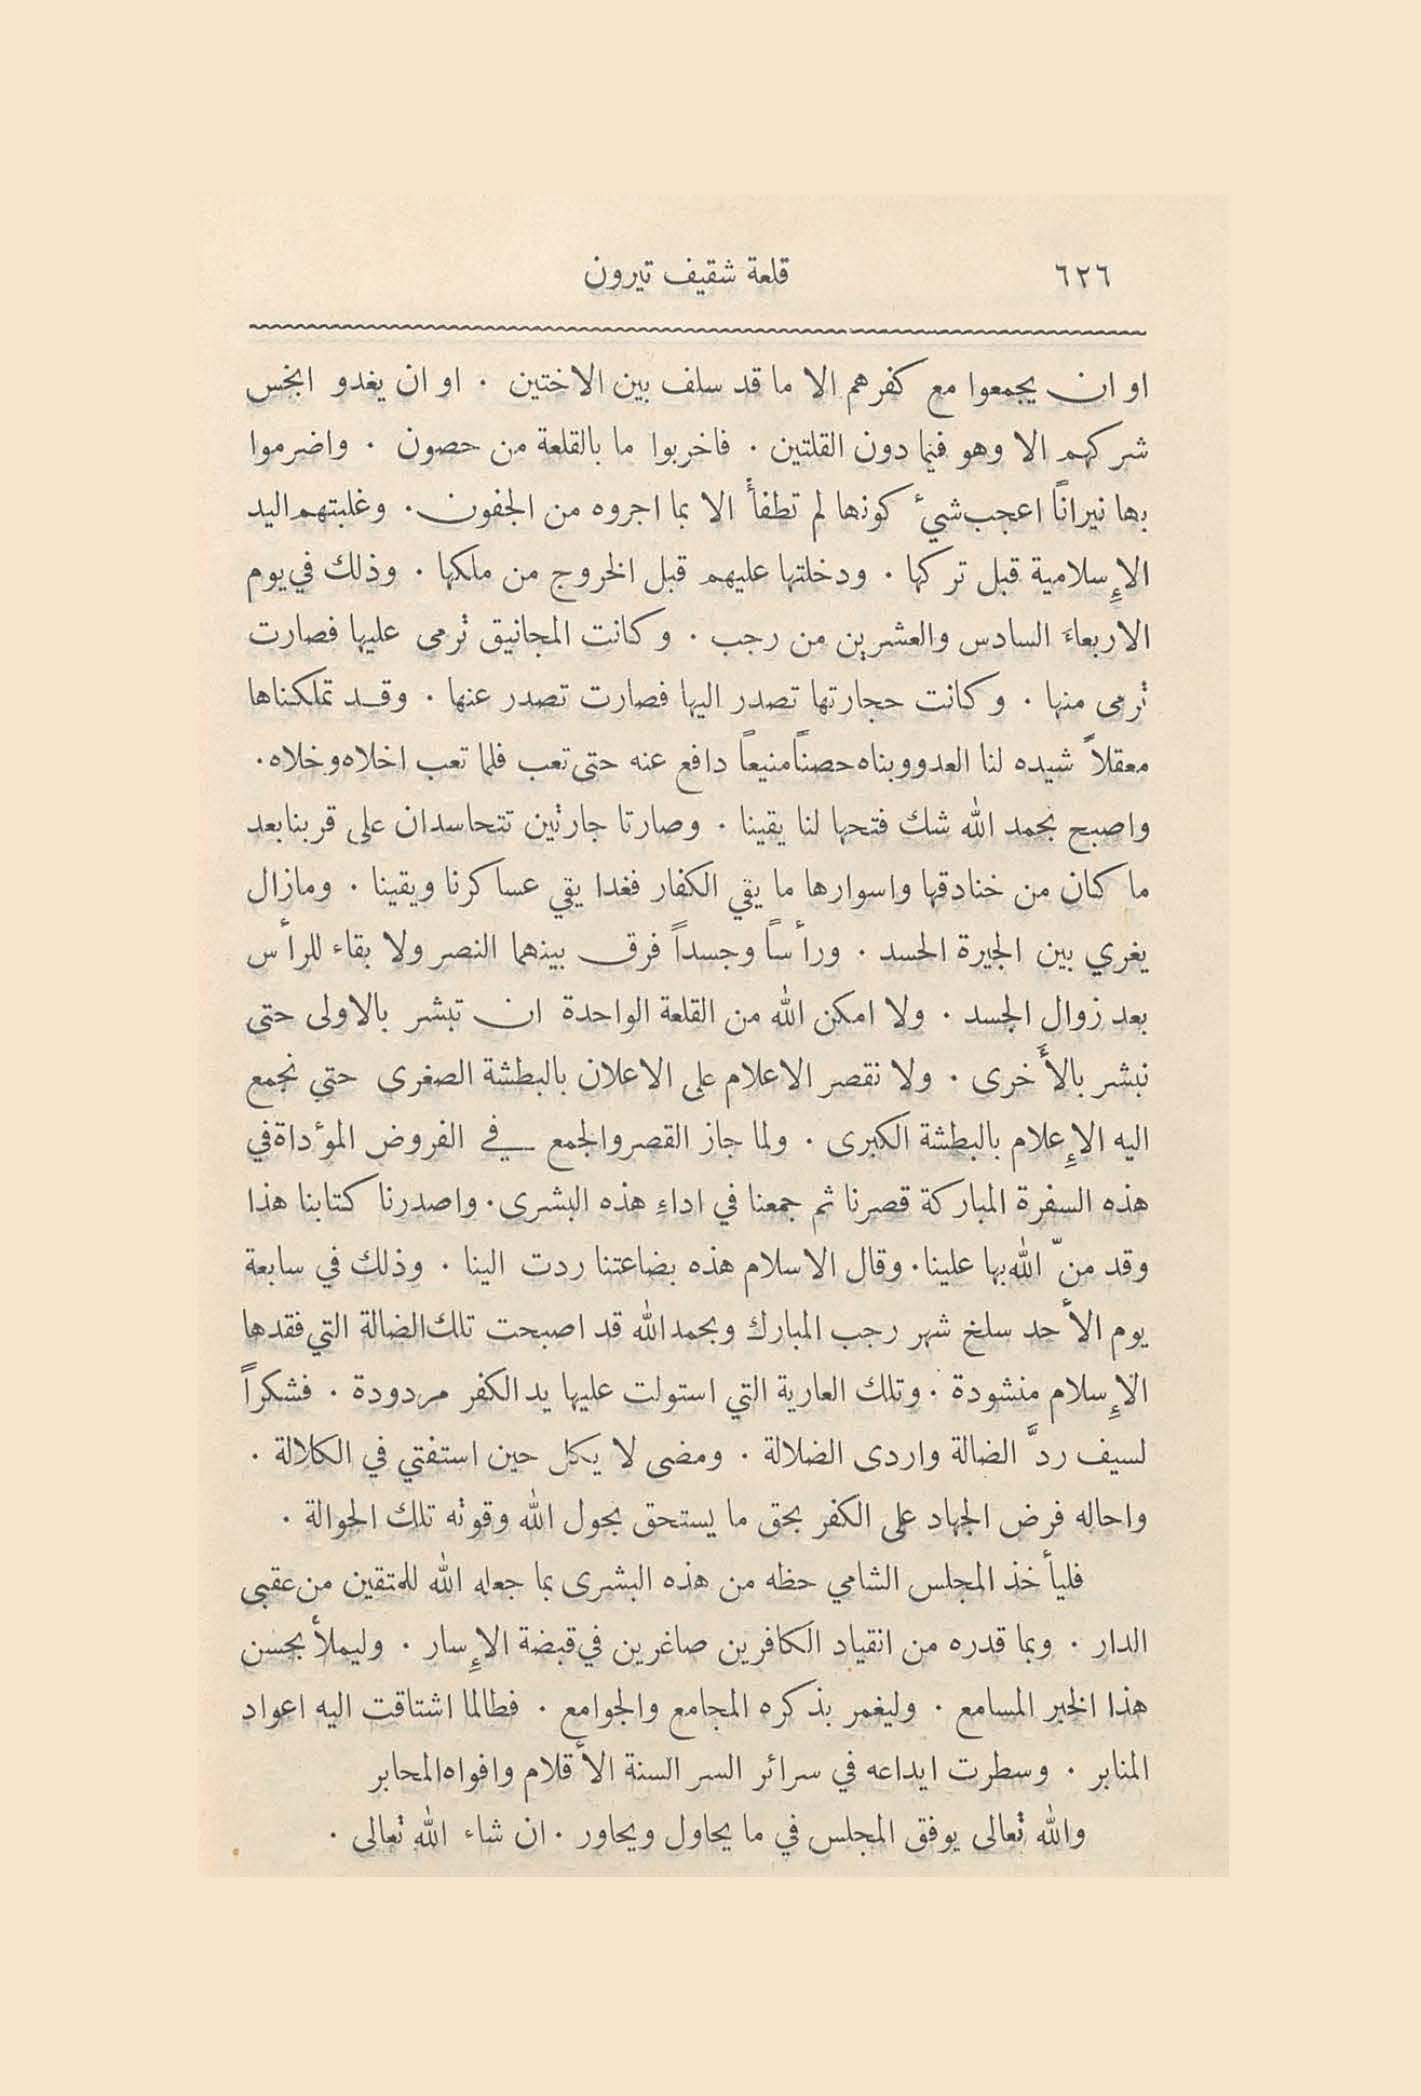 ٦٢٦ قلعة شقيف تيرون
او ان يجمعوا مع كفرهم الا ما قد سلف بين الاختين . او ان يغدو ابخس
شركهم الا وهو فيما دون القلتين . فاخربوا ما بالقلعة من حصون . واضرموا
بها نيراناً اعجب شيء كونها لم تطفأ الا بما اجروه من الجفون . وغلبتهم اليد
الإسلامية قبل تركها . ودخلتها عليهم قبل الخروج من ملكها . وذلك في يوم
الاربعاء السادس والعشرين من رجب . وكانت المجانيق ترمى عليها فصارت
ترمى منها . وكانت حجارتها تصدر اليها فصارت تصدر عنها . وقد تملكناها
معقلاً شيده لنا العدو وبناه حصناً منيعاً دافع عنه حتى تعب فلما تعب اخلاه وخلاه .
واصبح بحمد الله شك فتحها لنا يقينا . وصارتا جارتين تتحاسدان على قربنا بعد
ما كان من خنادقها واسوارها ما يقي الكفار فغدا يقي عساكرنا ويقينا . ومازال
يغري بين الجيرة الحسد . ورأساً وجسداً فرق بينهما النصر ولا بقاء للرأس
بعد زوال الجسد . ولا امكن الله من القلعة الواحدة ان تبشر بالاولى حتى
نبشر بالأَخرى . ولا نقصر الاعلام على الاعلان بالبطشة الصغرى حتي نجمع
اليه الإعلام بالبطشة الكبرى . ولما جاز القصر والجمع في الفروض المؤداة في
هذه السفرة المباركة قصرنا ثم جمعنا في اداءِ هذه البشرى . واصدرنا كتابنا هذا
وقد منّ الله بها علينا . وقال الاسلام هذه بضاعتنا ردت الينا . وذلك في سابعة
يوم الأحد سلخ شهر رجب المبارك وبحمد الله قد اصبحت تلك الضالة التي فقدها
الإسلام منشودة . وتلك العارية التي استولت عليها يد الكفر مردودة . فشكراً
لسيف ردَّ الضالة واردى الضلالة . ومضى لا يكل حين استفتي في الكلالة .
واحاله فرض الجهاد على الكفر بحق ما يستحق بحول الله وقوته تلك الحوالة .
فليأخذ المجلس الشامي حظه من هذه البشرى بما جعله الله للمتقين من عقبى
الدار . وبما قدره من انقياد الكافرين صاغرين في قبضة الإسار . وليملأ بحسن
هذا الخبر المسامع . وليغمر بذكره المجامع والجوامع . فطالما اشتاقت اليه اعواد
المنابر . وسطرت ايداعه في سرائر السر السنة الأقلام وافواه المحابر
والله تعالى يوفق المجلس في ما يحاول ويحاور . ان شاء الله تعالى .